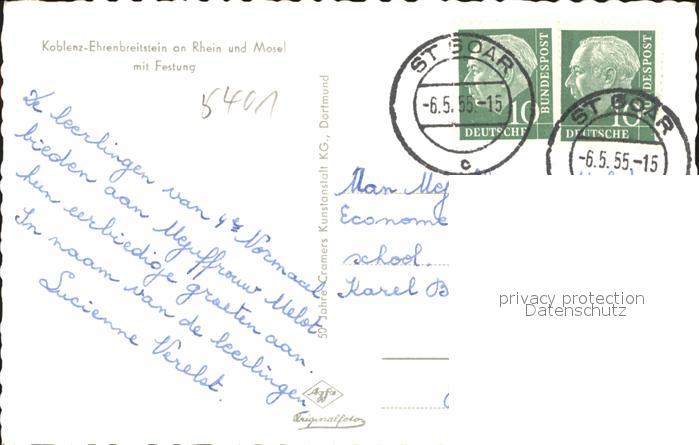 Koblenz-Ehrenbreitstein an Rhein und Mosel
mit Festung
5401
De leerlingen van 4de Normaal
bieden aan Mejuffrouw Melot
hun eerbiedige groeten aan.
In naam van de leerlingen
Lucienne Verelst.
50 Jahre Cramers Kunstanstalt KG., Dortmund
Agfa
Originalfoto
ST GOAR
-6.5.55.-15
c
10
DEUTSCHE
BUNDESPOST
10
DEUTSCHE
BUNDESPOST
ST GOAR
-6.5.55-15
Aan Mej
Econome
school.
Karel B
privacy protection
Datenschutz